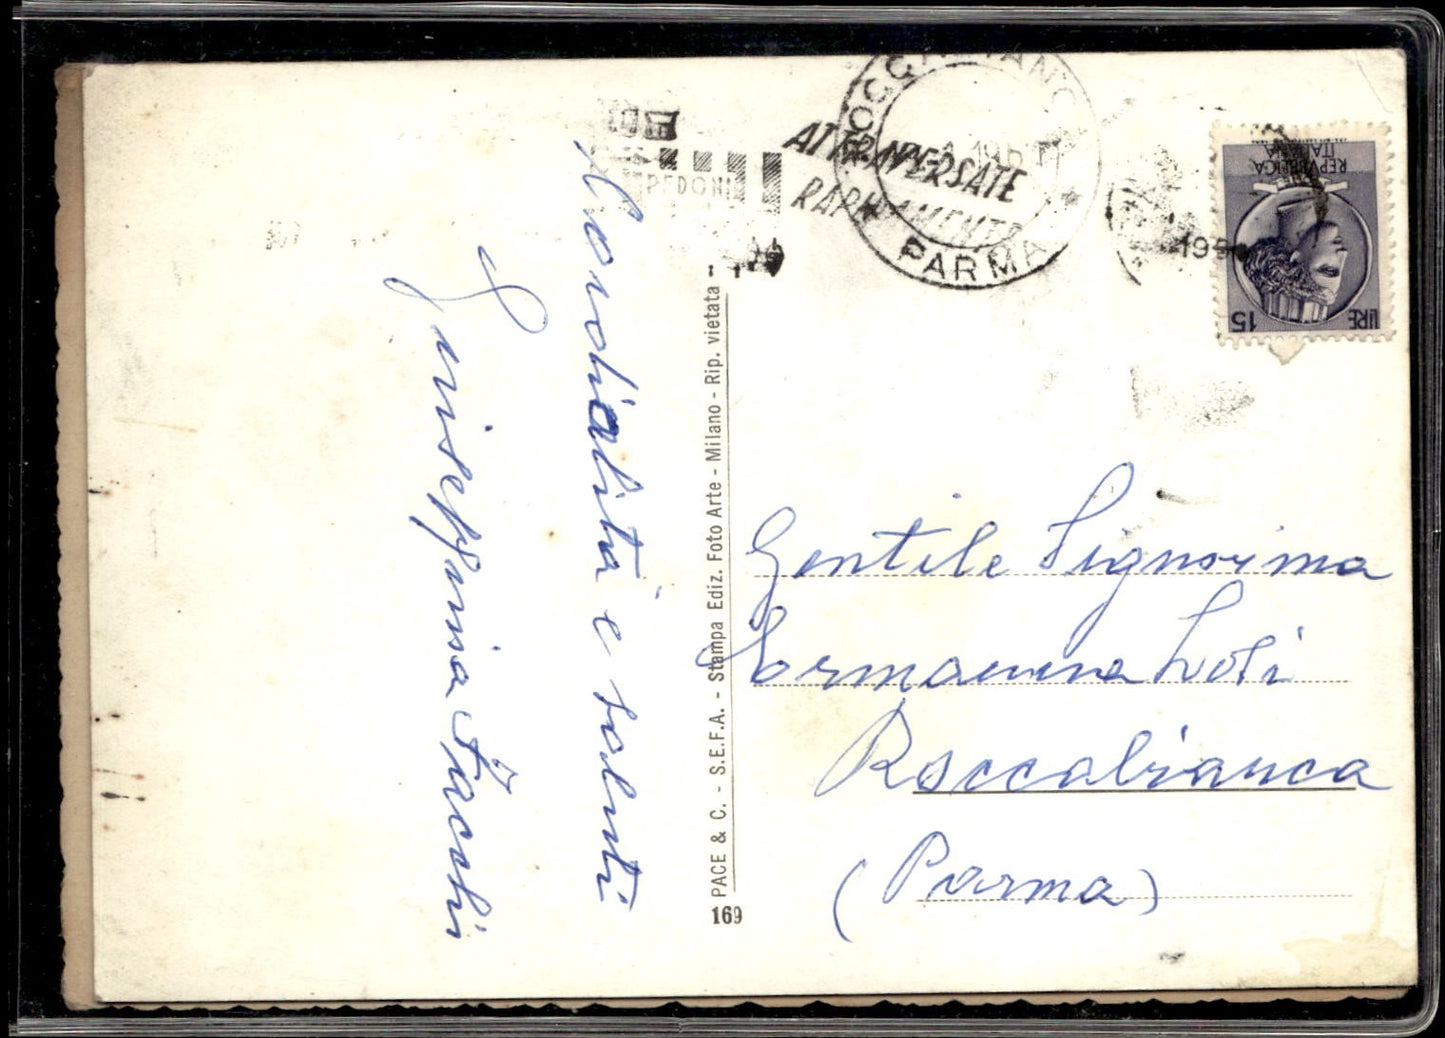 Cordialità e saluti
Giuseppina Facchi
PACE & C. - S.E.F.A. - Stampa Ediz. Foto Arte - Milano - Rip. vietata -
169
PEDONI
ATTRAVERSATE
RAPIDAMENTE
PARMA
195
REPVBBLICA
ITALIANA
LIRE 15
Gentile Signorina
Ermannina Loti
Roccabianca
(Parma)